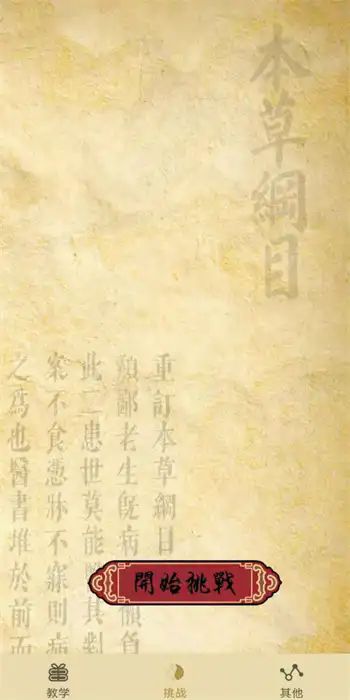 本草綱目
重訂本草綱目
鄙老生旣病
此二患世莫能其
案不食憑牀不寐則病
之爲也醫書堆於前而
開始挑戰
教学
挑战
其他